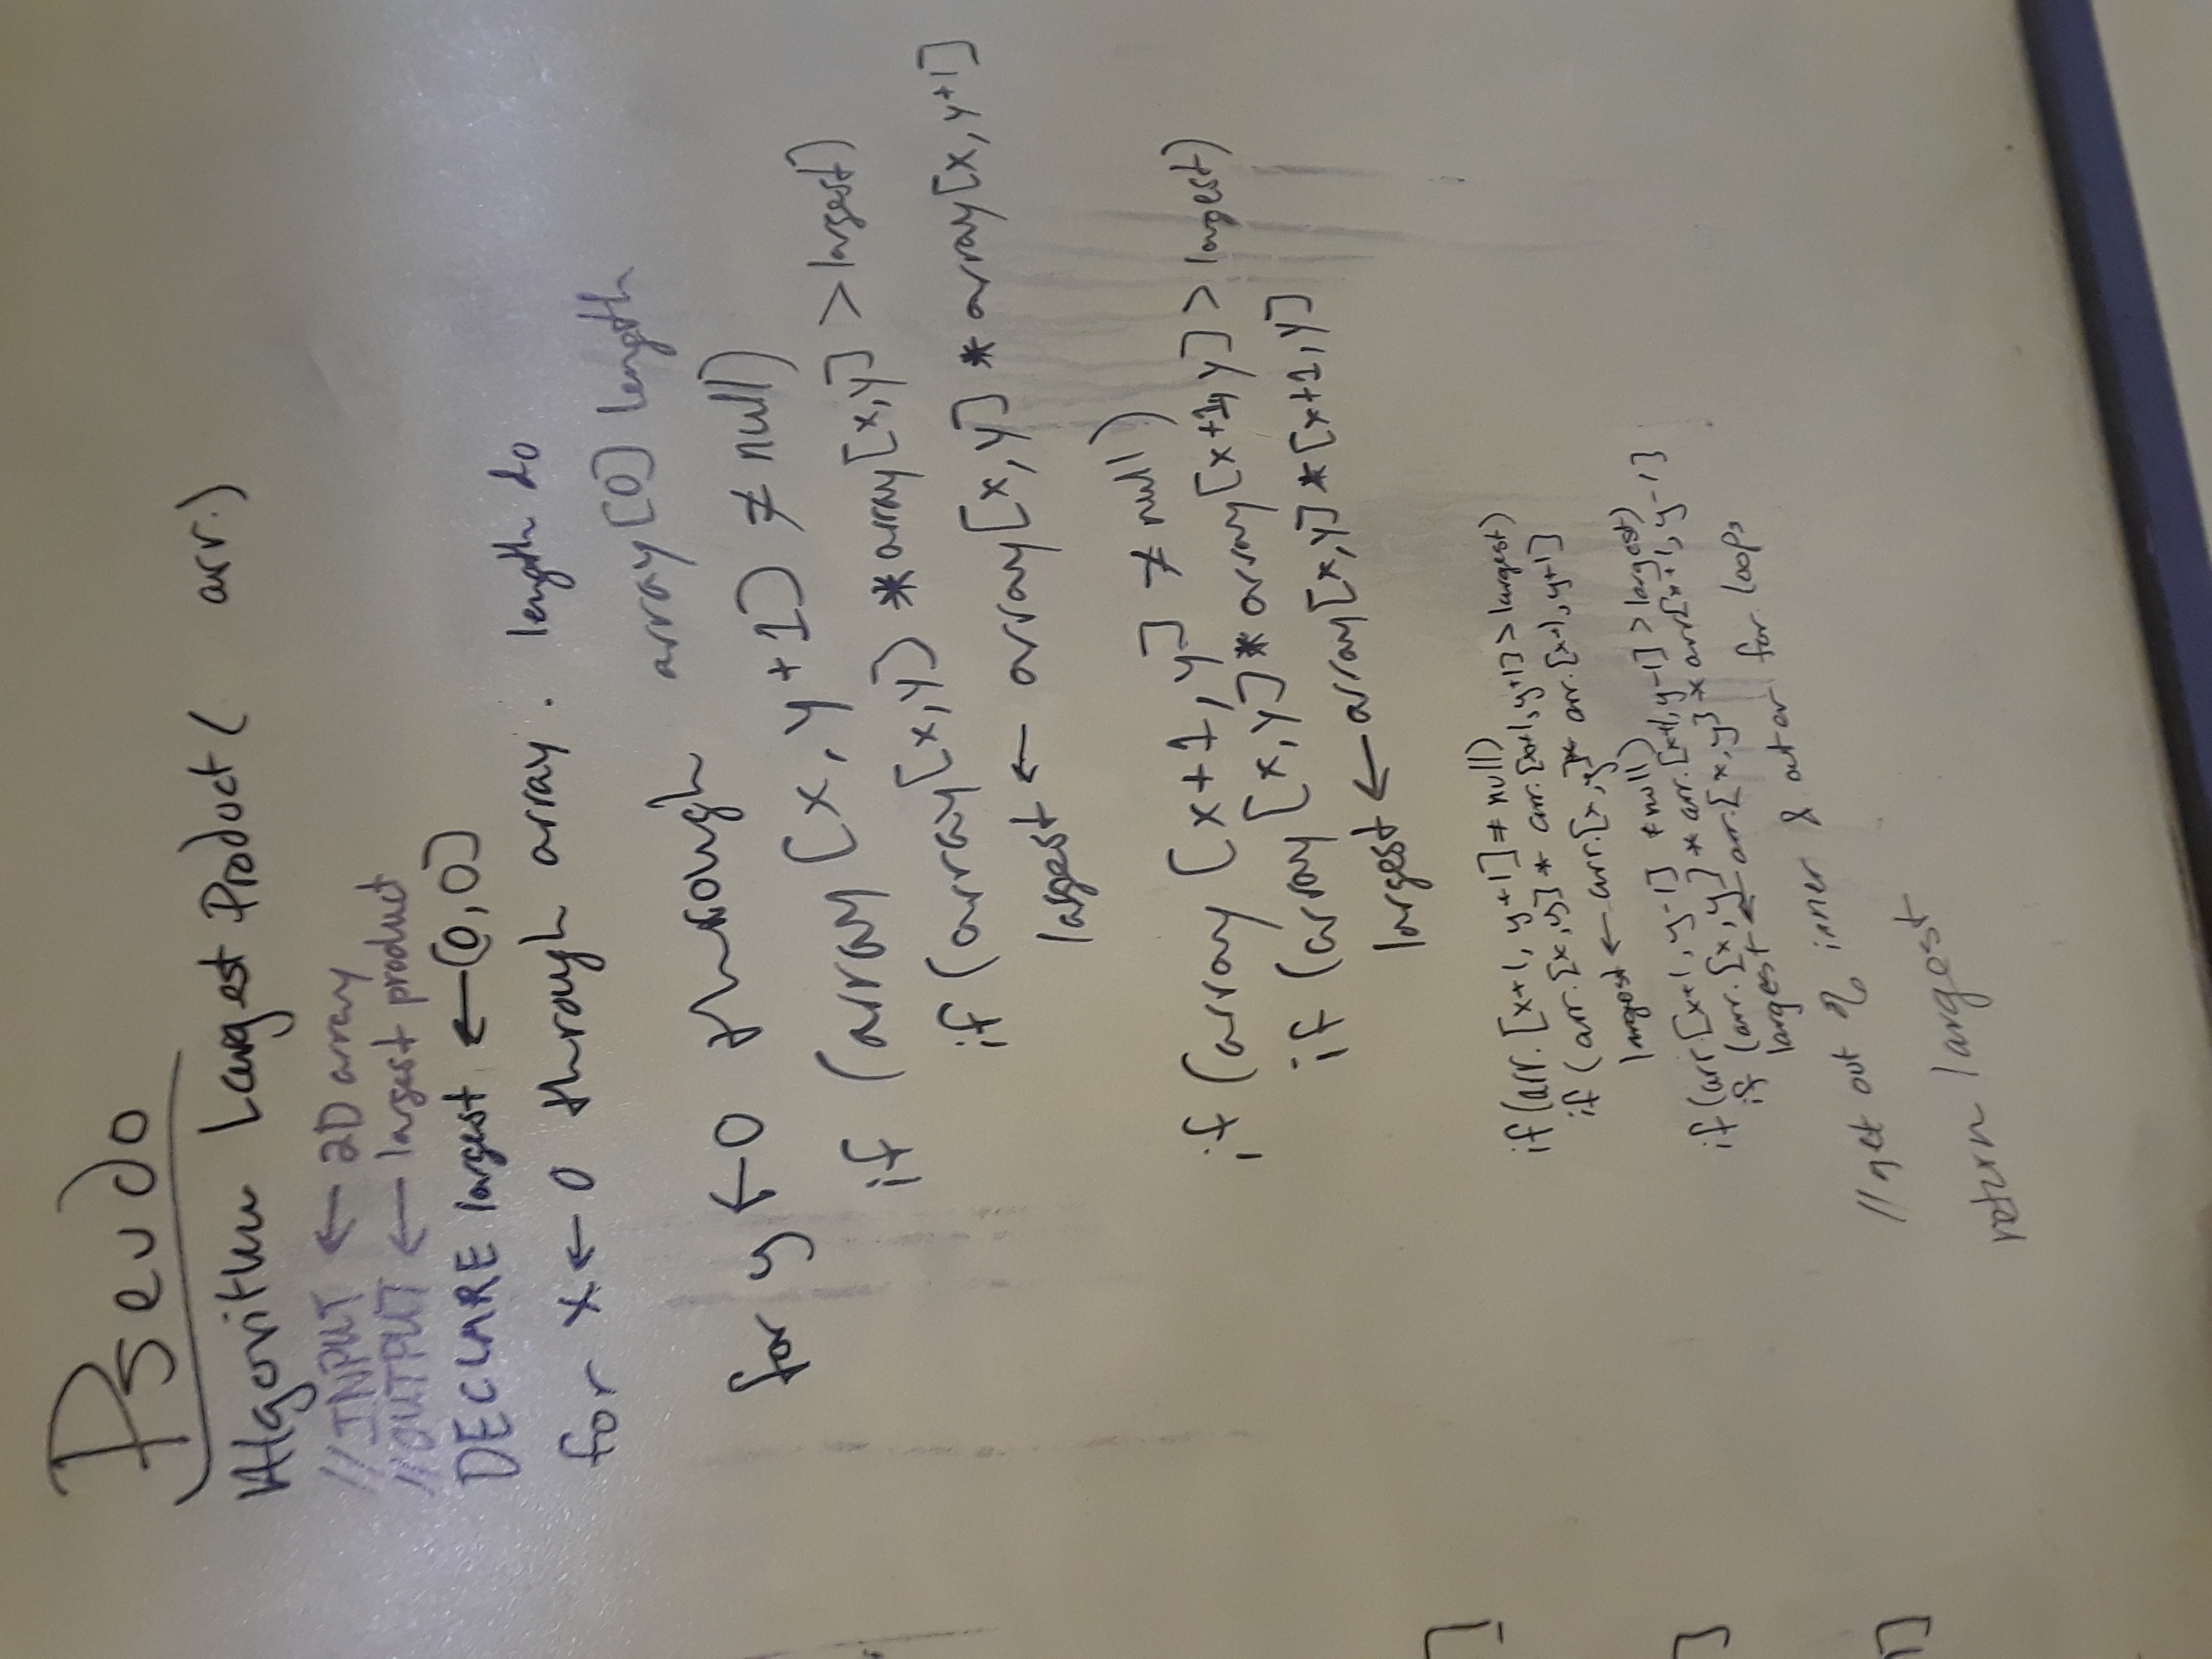 Pseudo
Algorithm Largest Product ( arr.)
//INPUT ← 2D array
//OUTPUT ← largest product
DECLARE largest ← [0,0]
for x ← 0 through array . length do
for y ← 0 through array[0] length
if (array [x, y+1] ≠ null)
if (array[x,y] * array[x,y] > largest)
largest ← array[x,y] * array[x, y+1]
if (array [x+1, y] ≠ null)
if (array [x,y] * array[x+1, y] > largest)
largest ← array[x,y] * [x+1, y]
if (arr. [x+1, y+1] ≠ null)
if (arr. [x,y] * arr. [x+1, y+1] > largest)
largest ← arr. [x,y] * arr. [x+1, y+1]
if (arr. [x+1, y-1] ≠ null)
if (arr. [x,y] * arr. [x+1, y-1] > largest)
largest ← arr. [x,y] * arr[x+1, y-1]
//get out of inner & outer for loops
return largest
]
]
1]